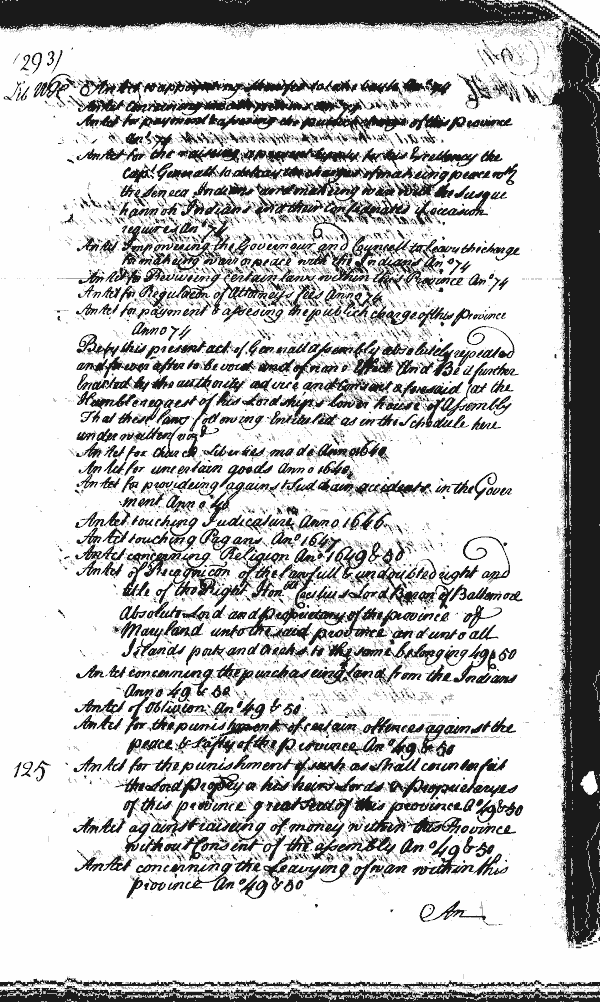 (293)
Lib WH
An Act reappointing
An Act concerning
An Act for payment & assessing the publick charge of this Province
Ano 74
An Act for the raising a present supply for his Excellency the
Capt Generall to defray the charges of makeing peace wth
the Seneca Indians and makeing warr with the Susque
hannoh Indians and their Confederates if occasion
requires Ano 74
An Act Impowering the Governour and Councell to leavie & charge
in makeing warr or peace with the Indians Ano 74
An Act for Reviveing certain laws within this Province Ano 74
An Act for Regulacon of Attorneys fees Anno 74
An Act for payment & assesing the publick charge of this Province
Anno 74
Be by this present act of Generall Assembly absolutely repealed
and forever after to be void and of none Effect And Be it further
Enacted by the authority advice and Consent aforesaid (at the
Humble request of his Lordships lower house of Assembly
That these laws following Entituled as in the Schedule here
under written (viz)
An Act for Church Liberties made Anno 1640
An Act for uncertain goods Anno 1640
An Act for provideing against Suddain accidents in the Gover
ment Anno 46
An Act touching Judicature Anno 1646
An Act touching Pagans Ano 1647
An Act concerning Religion Ano 1649 & 50
An Act of Recognicon of the lawfull & undoubted right and
title of the Right Honble Cecilius Lord Baron of Baltemore
Absolute Lord and Propriatary of the province of
Maryland unto the said province and unto all
Islands ports and Creeks to the same belonging 49 & 50
An Act concerning the purchasing land from the Indians
Anno 49 & 50
An Act of Oblivion Ano 49 & 50
An Act for the punishment of certain offences against the
peace & Safty of the Province Ano 49 & 50
125
An Act for the punishment of such as Shall counterfeit
the Lord his heirs Lords & Proprietaryes
of this province great Seal of this province Ao 49 & 50
An Act against raising of money within this Province
without Consent of the assembly Ano 49 & 50
An Act concerning the Leavying of war within this
province Ano 49 & 50
An